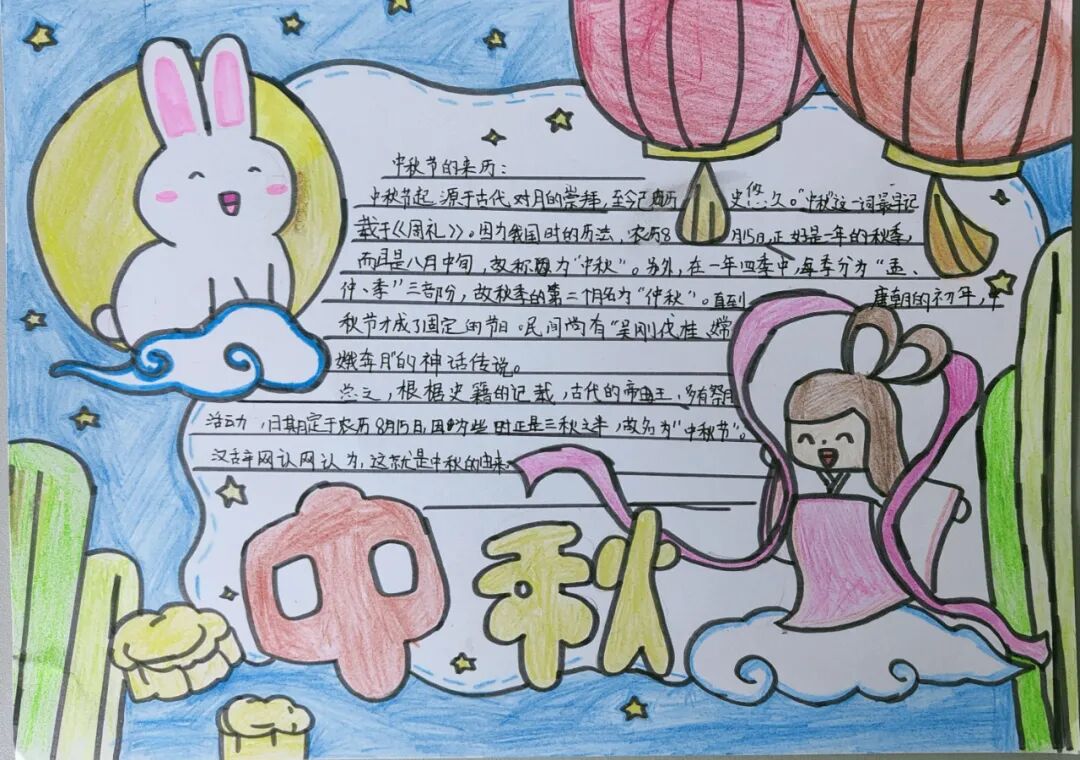 中秋节的来历：
中秋节起源于古代对月的崇拜，至今已历史悠久。“中秋”这一词最早记
载于《周礼》。因为我国时的历法，农历8月15日，正好是一年的秋季，
而且是八月中旬，故称为“中秋”。另外，在一年四季中，每季分为“孟、
仲、季”三部份，故秋季的第二个月名为“仲秋”。直到唐朝的初年，中
秋节才成了固定的节日。民间尚有“吴刚伐桂、嫦
娥奔月”的神话传说。
总之，根据史籍的记载，古代的帝王，多有祭月
活动，日期定于农历8月15日，因为些时正是三秋之半，故名为“中秋节”。
汉辞网认网认为，这就是中秋的由来
中秋